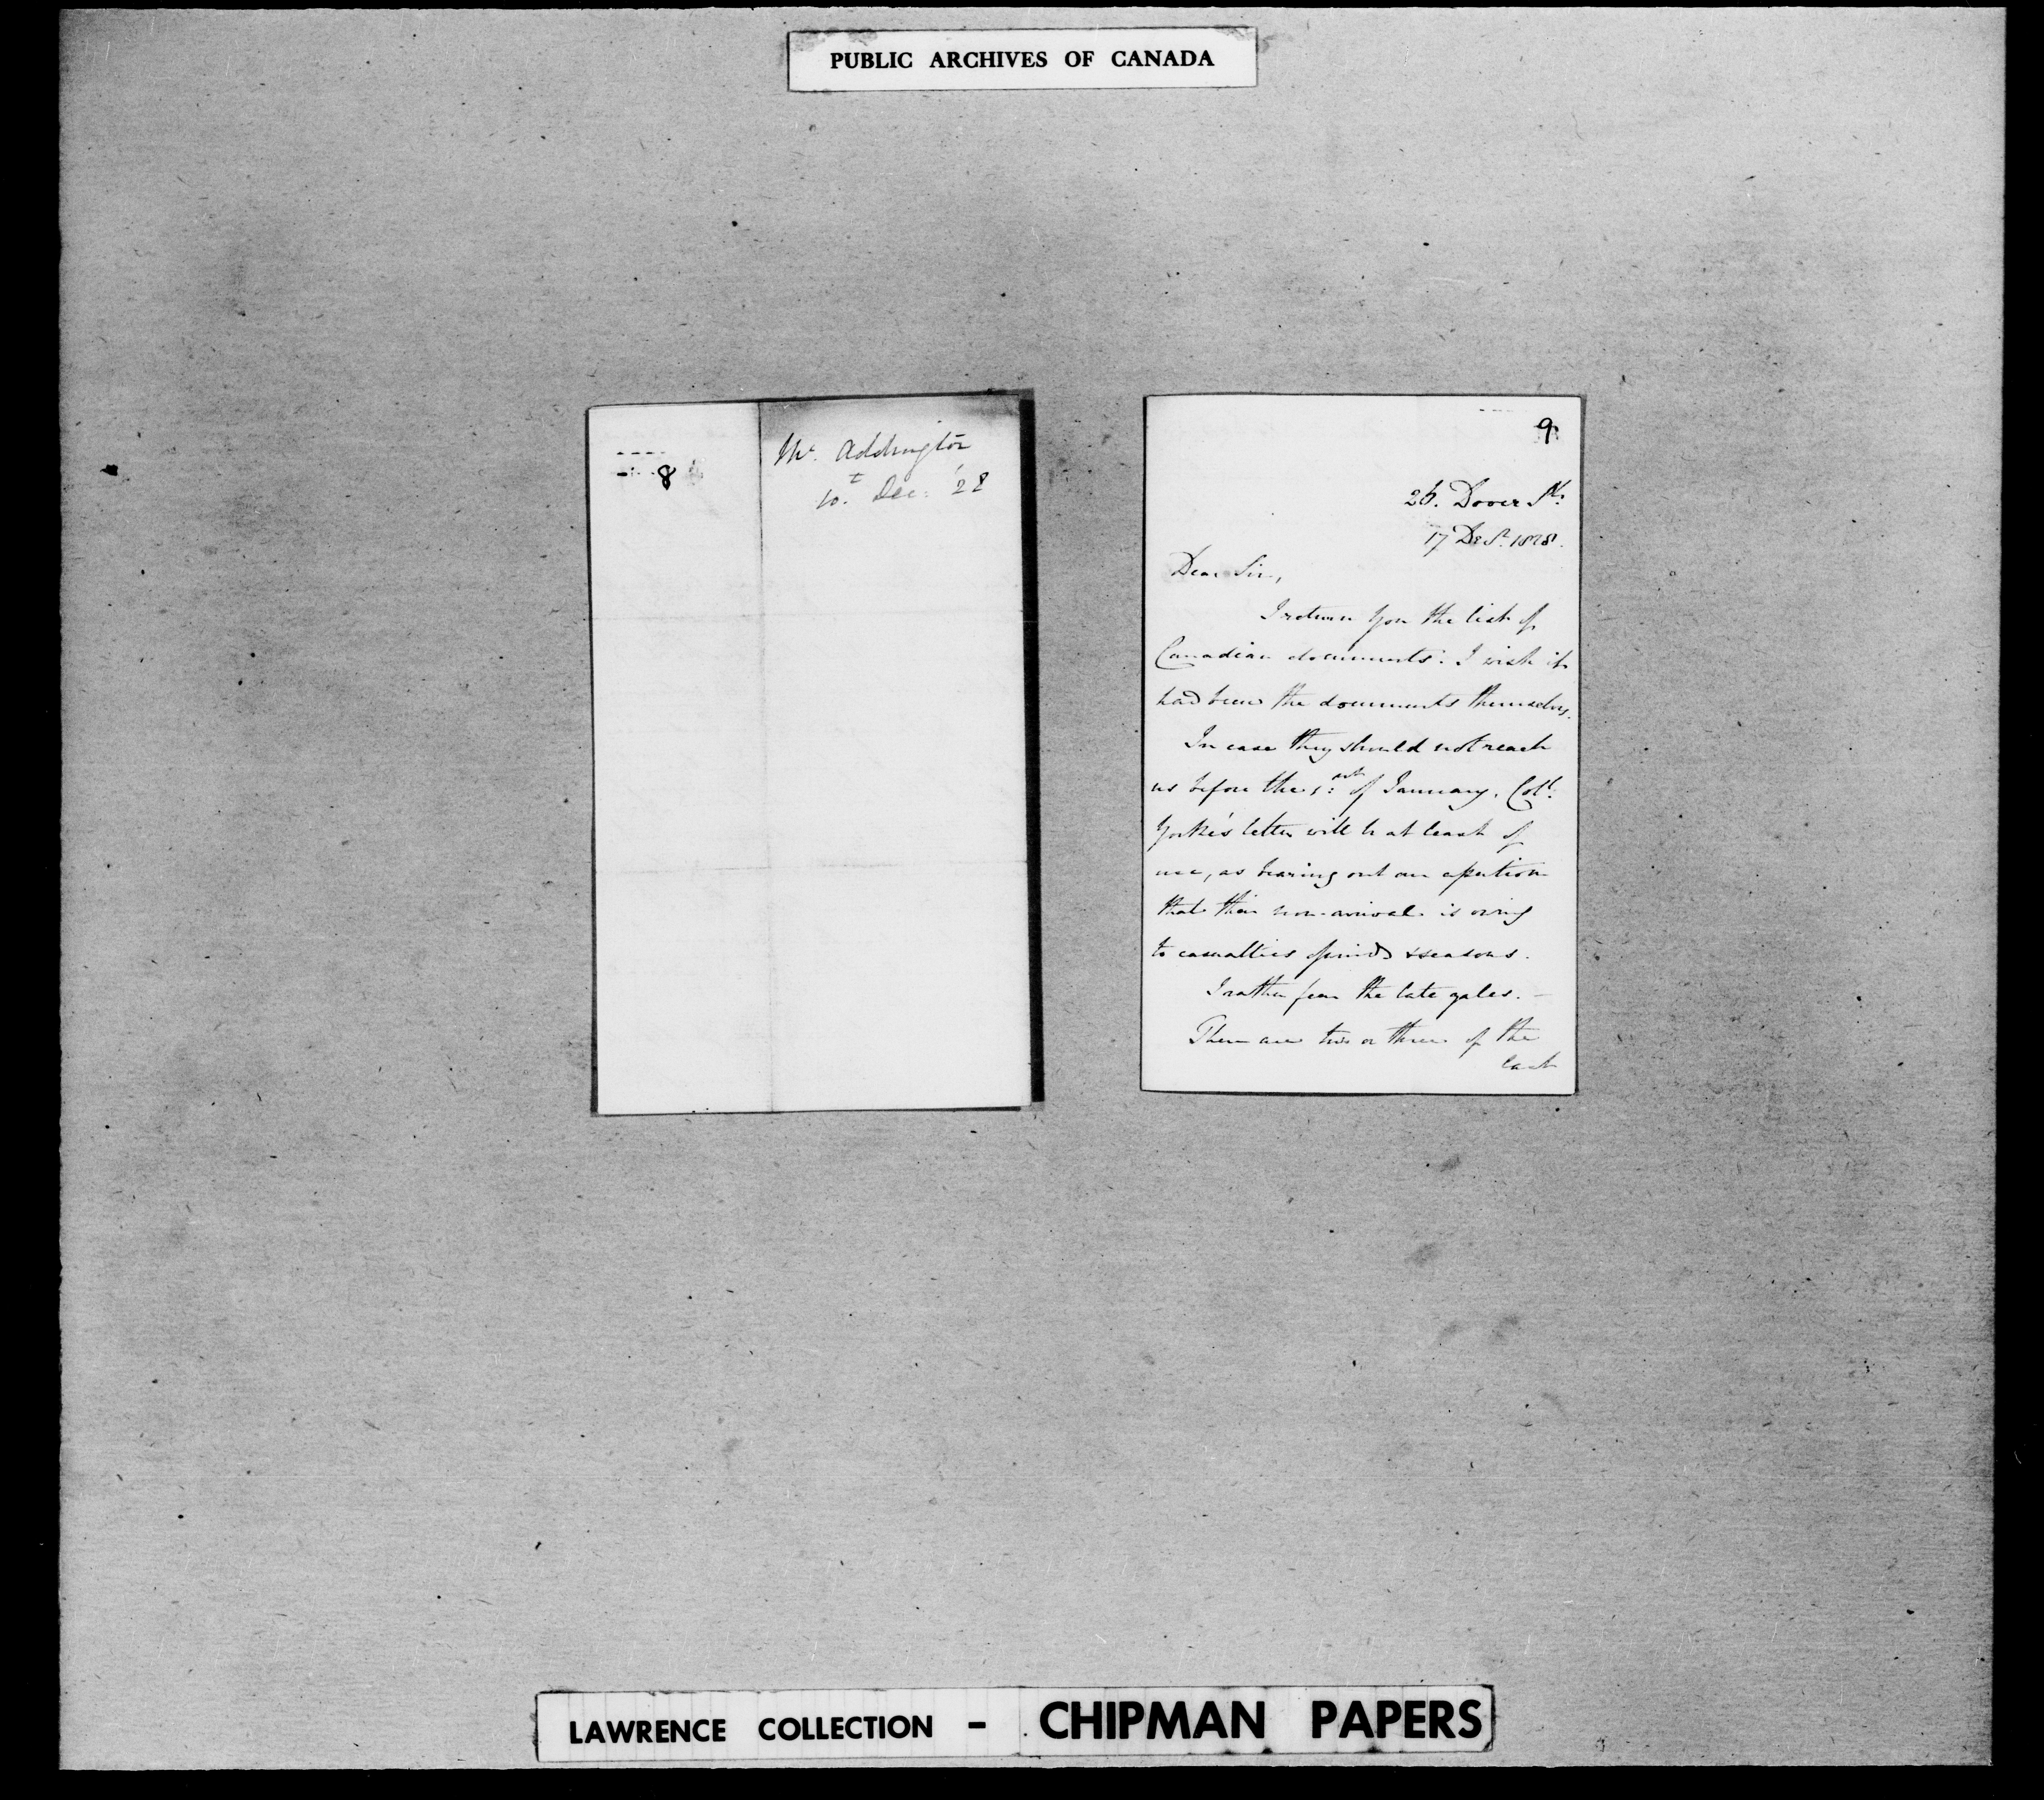 PUBLIC ARCHIVES OF CANADA
8
Mr. Addington
10.t Dec: '28
9
26. Dover St:
17 Decr. 1828.
Dear Sir,
I return you the list of
Canadian documents. I wish it
had been the documents themselves.
In case they should not reach
us before the 1st of January, Coll:
Yorke's letter will be at least of
use, as bearing out our assertion
that their non-arrival is owing
to casualties of winds & seasons.
I rather fear the late gales. —
There are two or three of the
last
LAWRENCE COLLECTION - CHIPMAN PAPERS